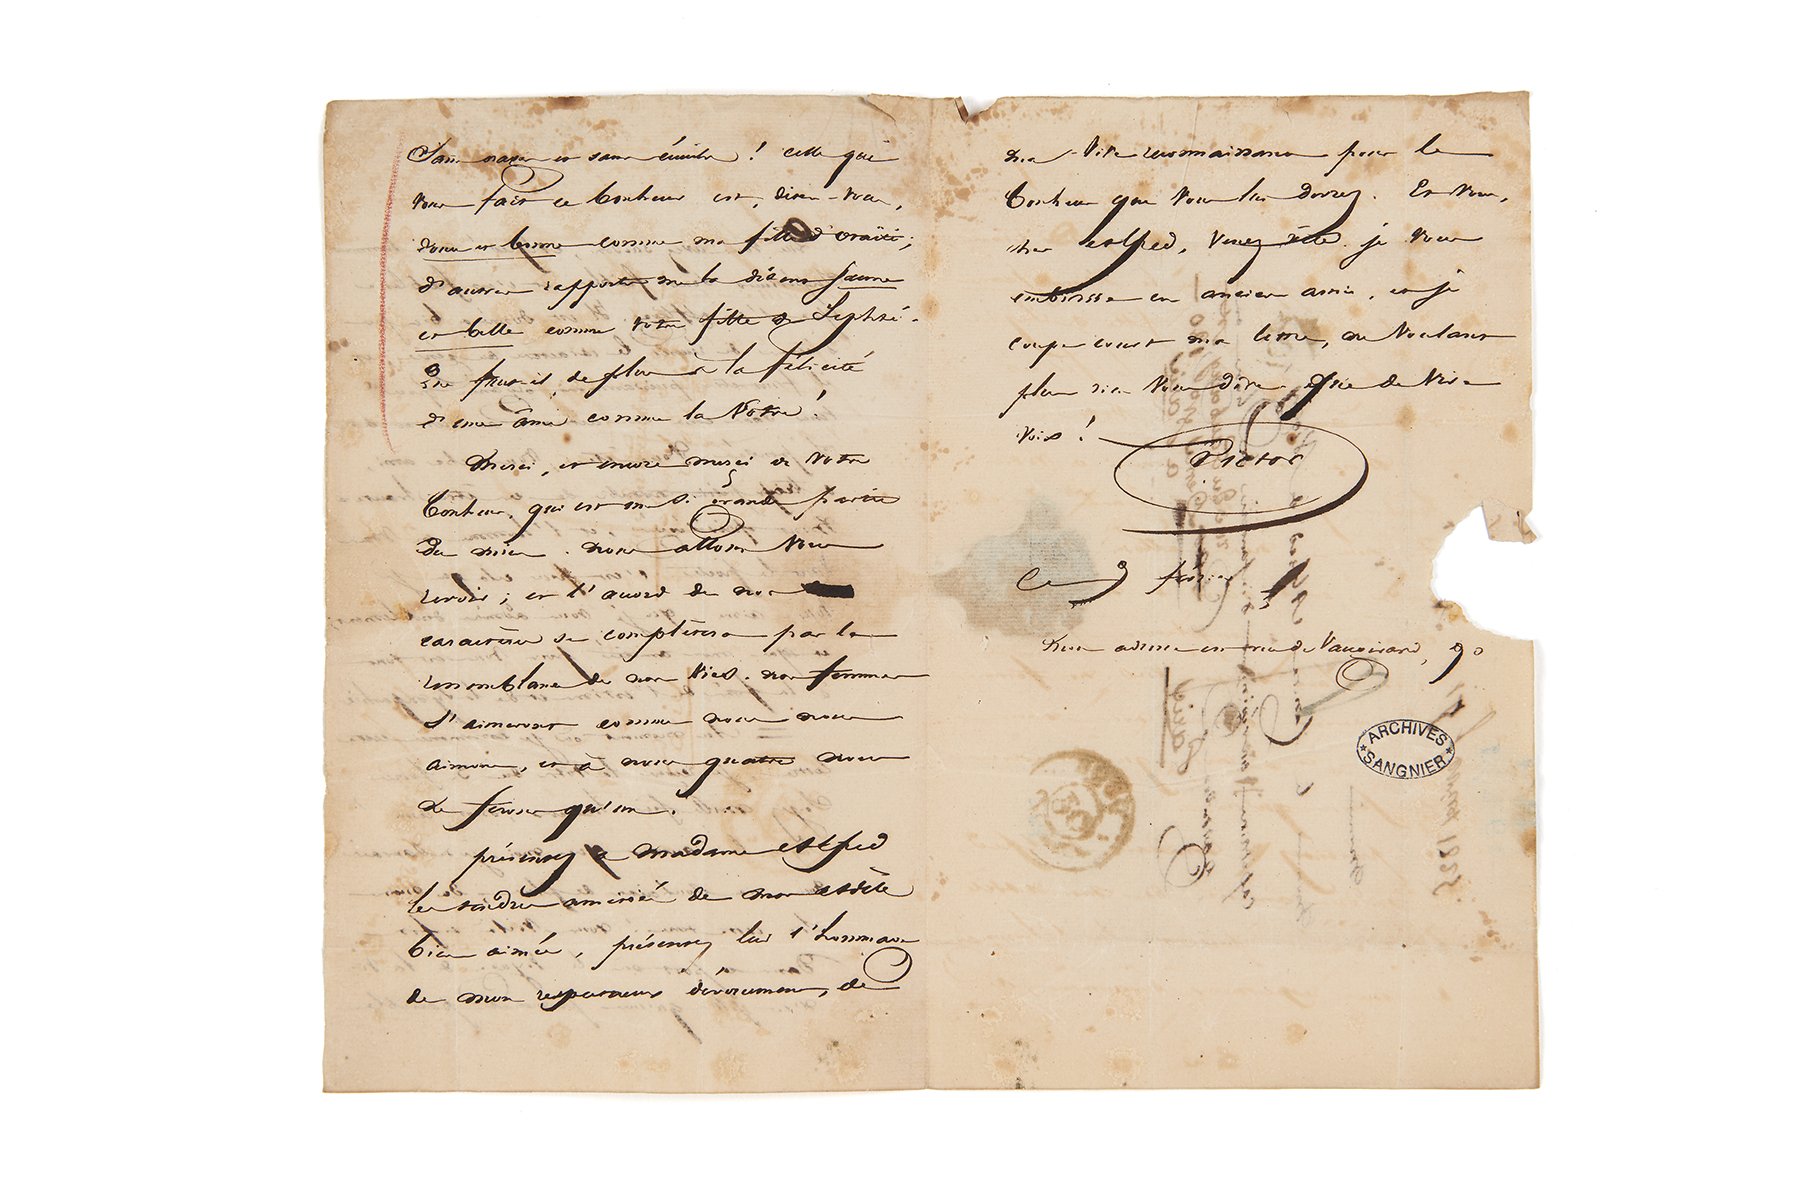 sans nuage et sans ombre ! celle qui
vous fait ce bonheur est, dites-vous,
douce et bonne comme ma fille d'O
d'autres rapports me la disent jeune
et belle comme votre fille de Jephté.
Que faut-il de plus à la félicité
d'une âme comme la vôtre !
Merci, et encore merci de votre
bonheur, qui est une si grande partie
du mien. nous allons vous
revoir ; et l'accord de nos
caractères se complètera par la
ressemblance de nos vies. nos femmes
s'aimeront comme nous nous
aimons, et à nous quatre nous
ne ferons qu'un.
présentez à Madame Alfred
les tendres amitiés de mon Adèle
bien aimée, présentez lui l'hommage
de mon respectueux dévouement, de
ma vive reconnaissance pour le
bonheur que vous lui devez. Et vous,
cher Alfred, venez vite. je vous
embrasse en ancien ami, et je
coupe court ma lettre, ne voulant
plus rien vous dire que de vive
voix !
Victor
Ce 9 février
Mon adresse est rue de Vaugirard, 90
ARCHIVES
SANGNIER